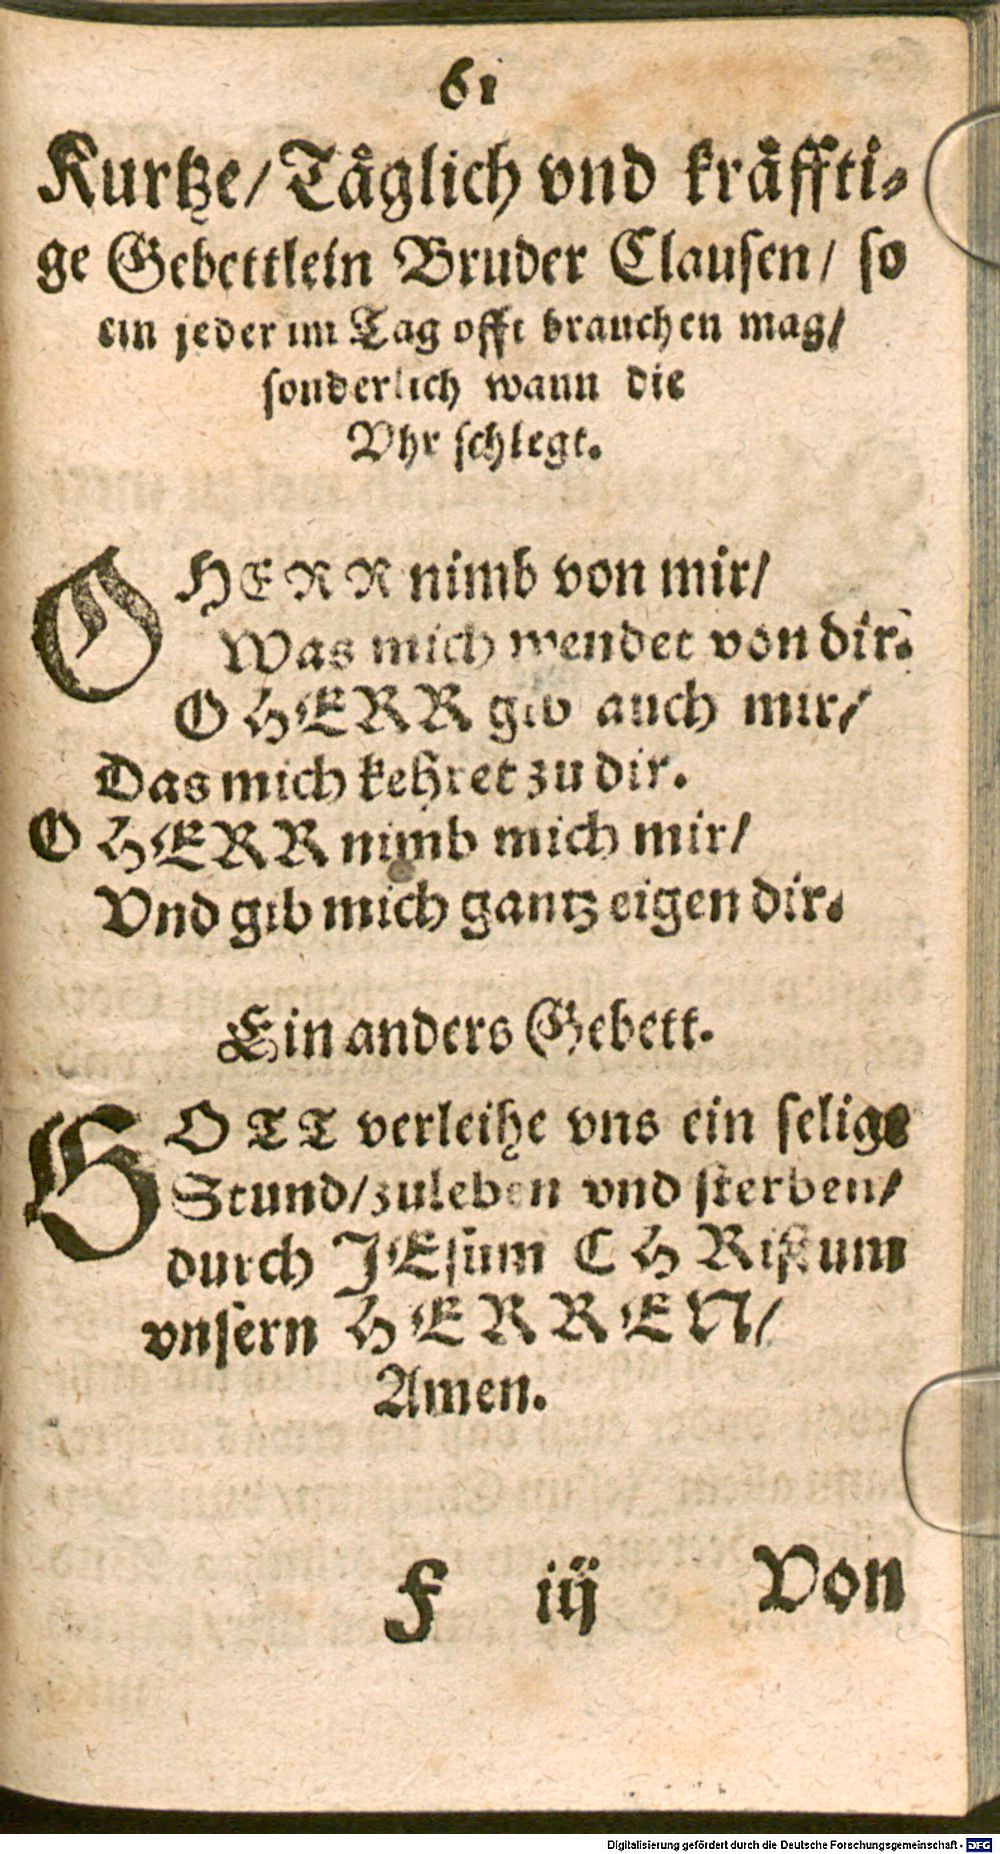 61
Kurtze/ Täglich vnd kräffti-
ge Gebettlein Bruder Clausen/ so
ein jeder im Tag offt brauchen mag/
sonderlich wann die
Vhr schlegt.
O HERR nimb von mir/
Was mich wendet von dir.
O HERR gib auch mir/
Das mich kehret zu dir.
O HERR nimb mich mir/
Vnd gib mich gantz eigen dir.
Ein anders Gebett.
GOTT verleihe vns ein selige
Stund/ zuleben vnd sterben/
durch JEsum CHRistum
vnsern HERREN/
Amen.
F iij Von
Digitalisierung gefördert durch die Deutsche Forschungsgemeinschaft - DFG